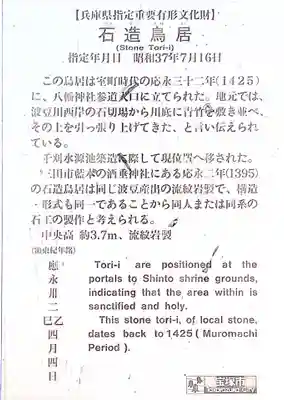 【兵庫県指定重要有形文化財】
石造鳥居
(Stone Tori-i)
指定年月日 昭和37年7月16日
この鳥居は室町時代の応永三十二年(1425)
に、八幡神社参道入口に立てられた。地元では、
波豆川西岸の石切場から川底に青竹を敷き並べ、
その上を引っ張り上げてきた、と言い伝えられ
ている。
千刈水源池築造に際して現位置へ移された。
三田市藍本の酒垂神社にある応永二年(1395)
の石造鳥居は同じ波豆産出の流紋岩製で、構造
・形式も同一であることから同人または同系の
石工の製作と考えられる。
中央高 約3.7m、流紋岩製
應永卅二乙巳四月四日
Tori-i are positioned at the
portals to Shinto shrine grounds,
indicating that the area within is
sanctified and holy.
This stone tori-i, of local stone,
dates back to 1425 ( Muromachi
Period ).
宝塚市